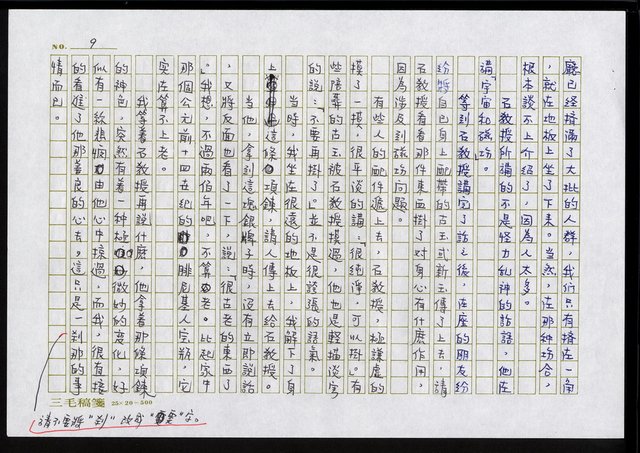 NO. 9
廳已經擠滿了大批的人群，我們只有擠在一角
，就在地板上坐了下來。當然，在那種場合，
根本談不上介紹了，因為人太多。
石教授所講的不是怪力亂神的話語，他在
講「宇宙和磁場」。
等到石教授講完了話之後，在座的朋友紛
紛將自己身上配帶的古玉或新玉傳了上去，請
石教授看看那件東西掛了對身心有什麼作用，
因為涉及到磁場問題。
有些人的配件遞上去，石教授，極謙虛的
摸了一摸，很平淡的講：「很純淨，可以掛。」有
些陪葬的古玉被石教授摸過，他也是輕描淡寫
的說：「不要再掛了。」並不是很誇張的語氣。
當時，我坐在很遠的地板上，我解下了身
上這條項鍊，請人傳上去給石教授。
當他，拿到這塊銀牌子時，沒有立即說話
，又將反面也看了一下，說：「很古老的東西了
。」我想，不過兩百年吧，不算老。比起家中
那個公元前十四世紀的腓尼基人寶瓶，它
實在算不上老。
我等著石教授再說什麼，他拿著那條項鍊
的神色，突然有著一種極微妙的變化，好
似有一絲悲憫由他心中掠過，而我，很直接
的看進了他那善良的心去。這只是一剎那的事
情而已。
三毛稿箋 25×20=500
請不要將"剎"改成"霎"字。